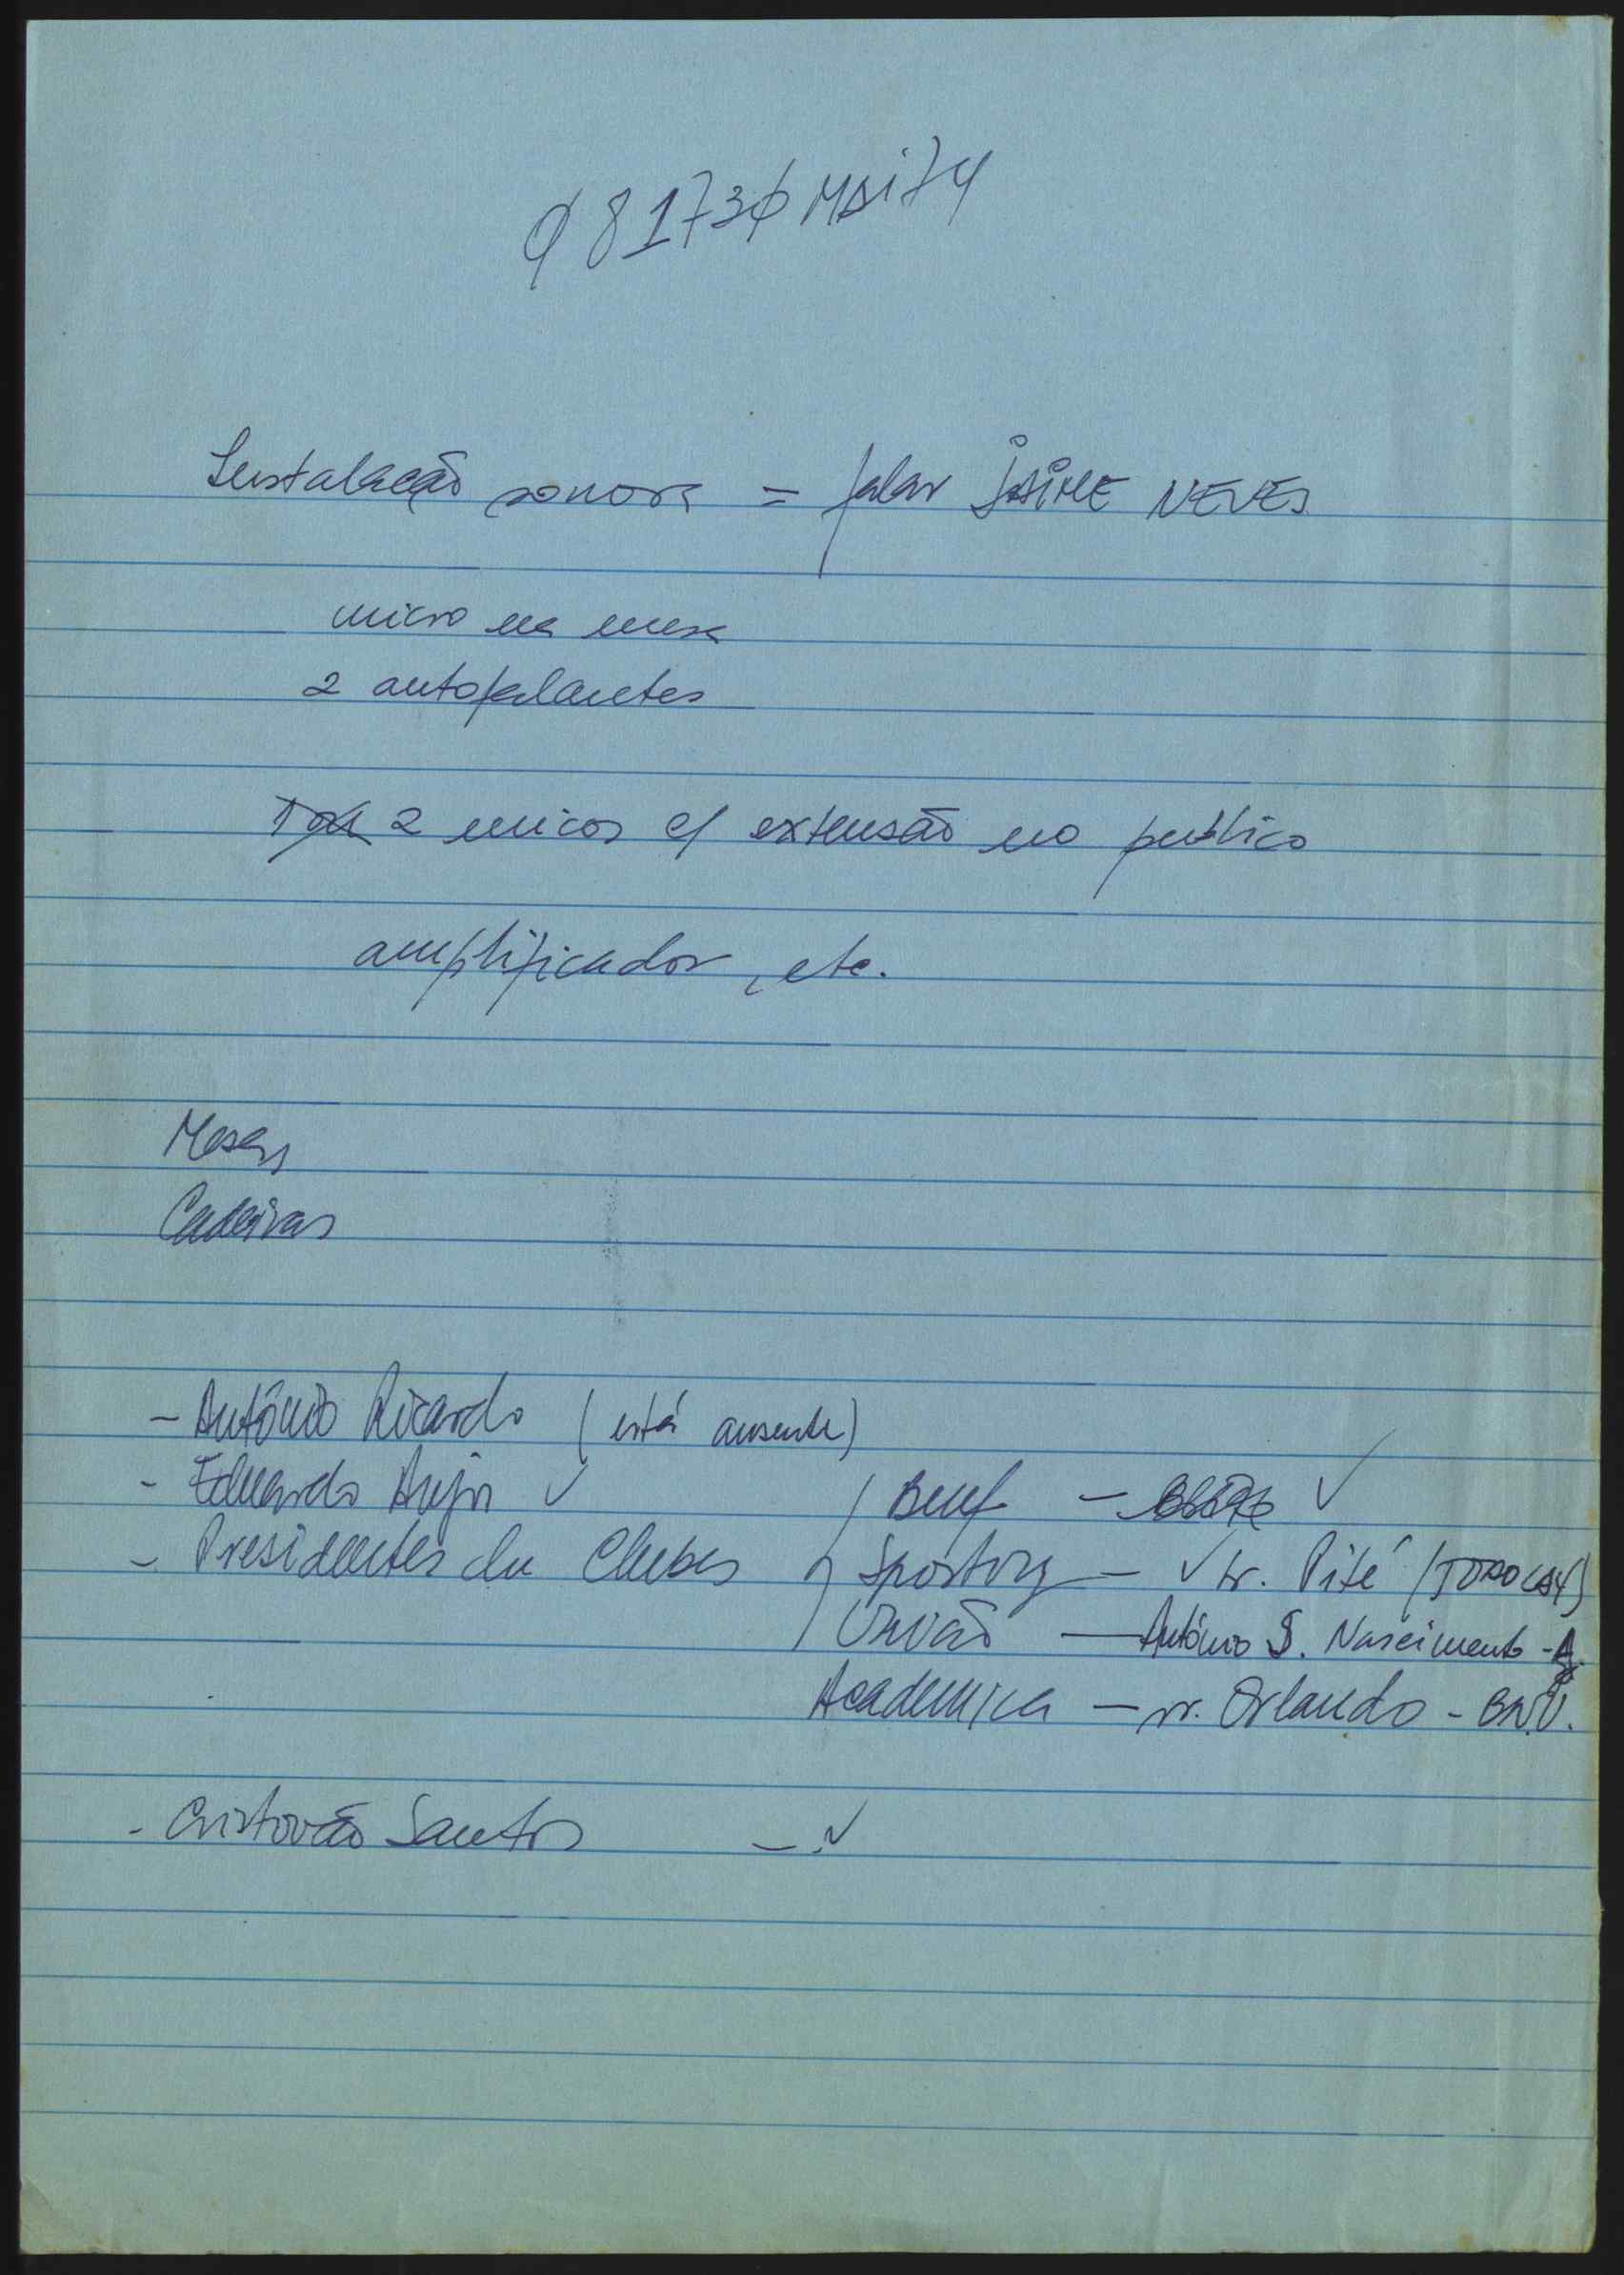 Ø81730 MAI74
Instalação sonora = falar JAIME NEVES
micro na mesa
2 autofalantes
2 micos c/ extensão no publico
amplificador, etc.
Mesas
Cadeiras
- António Ricardo (está ausente)
- Eduardo ✓
Benf - ✓
- Presidentes dos Clubes
Sporting - ✓ sr. Pité
União — António S. Nascimento -
Academica - sr. Orlando - B.N.U.
- Cristovão Santos - ✓